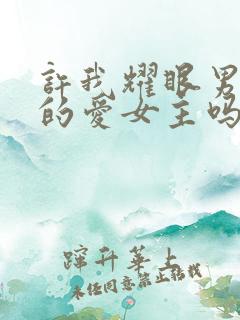 許我耀眼男
的愛女主嗎
蹿升華上
未经同意禁止转载